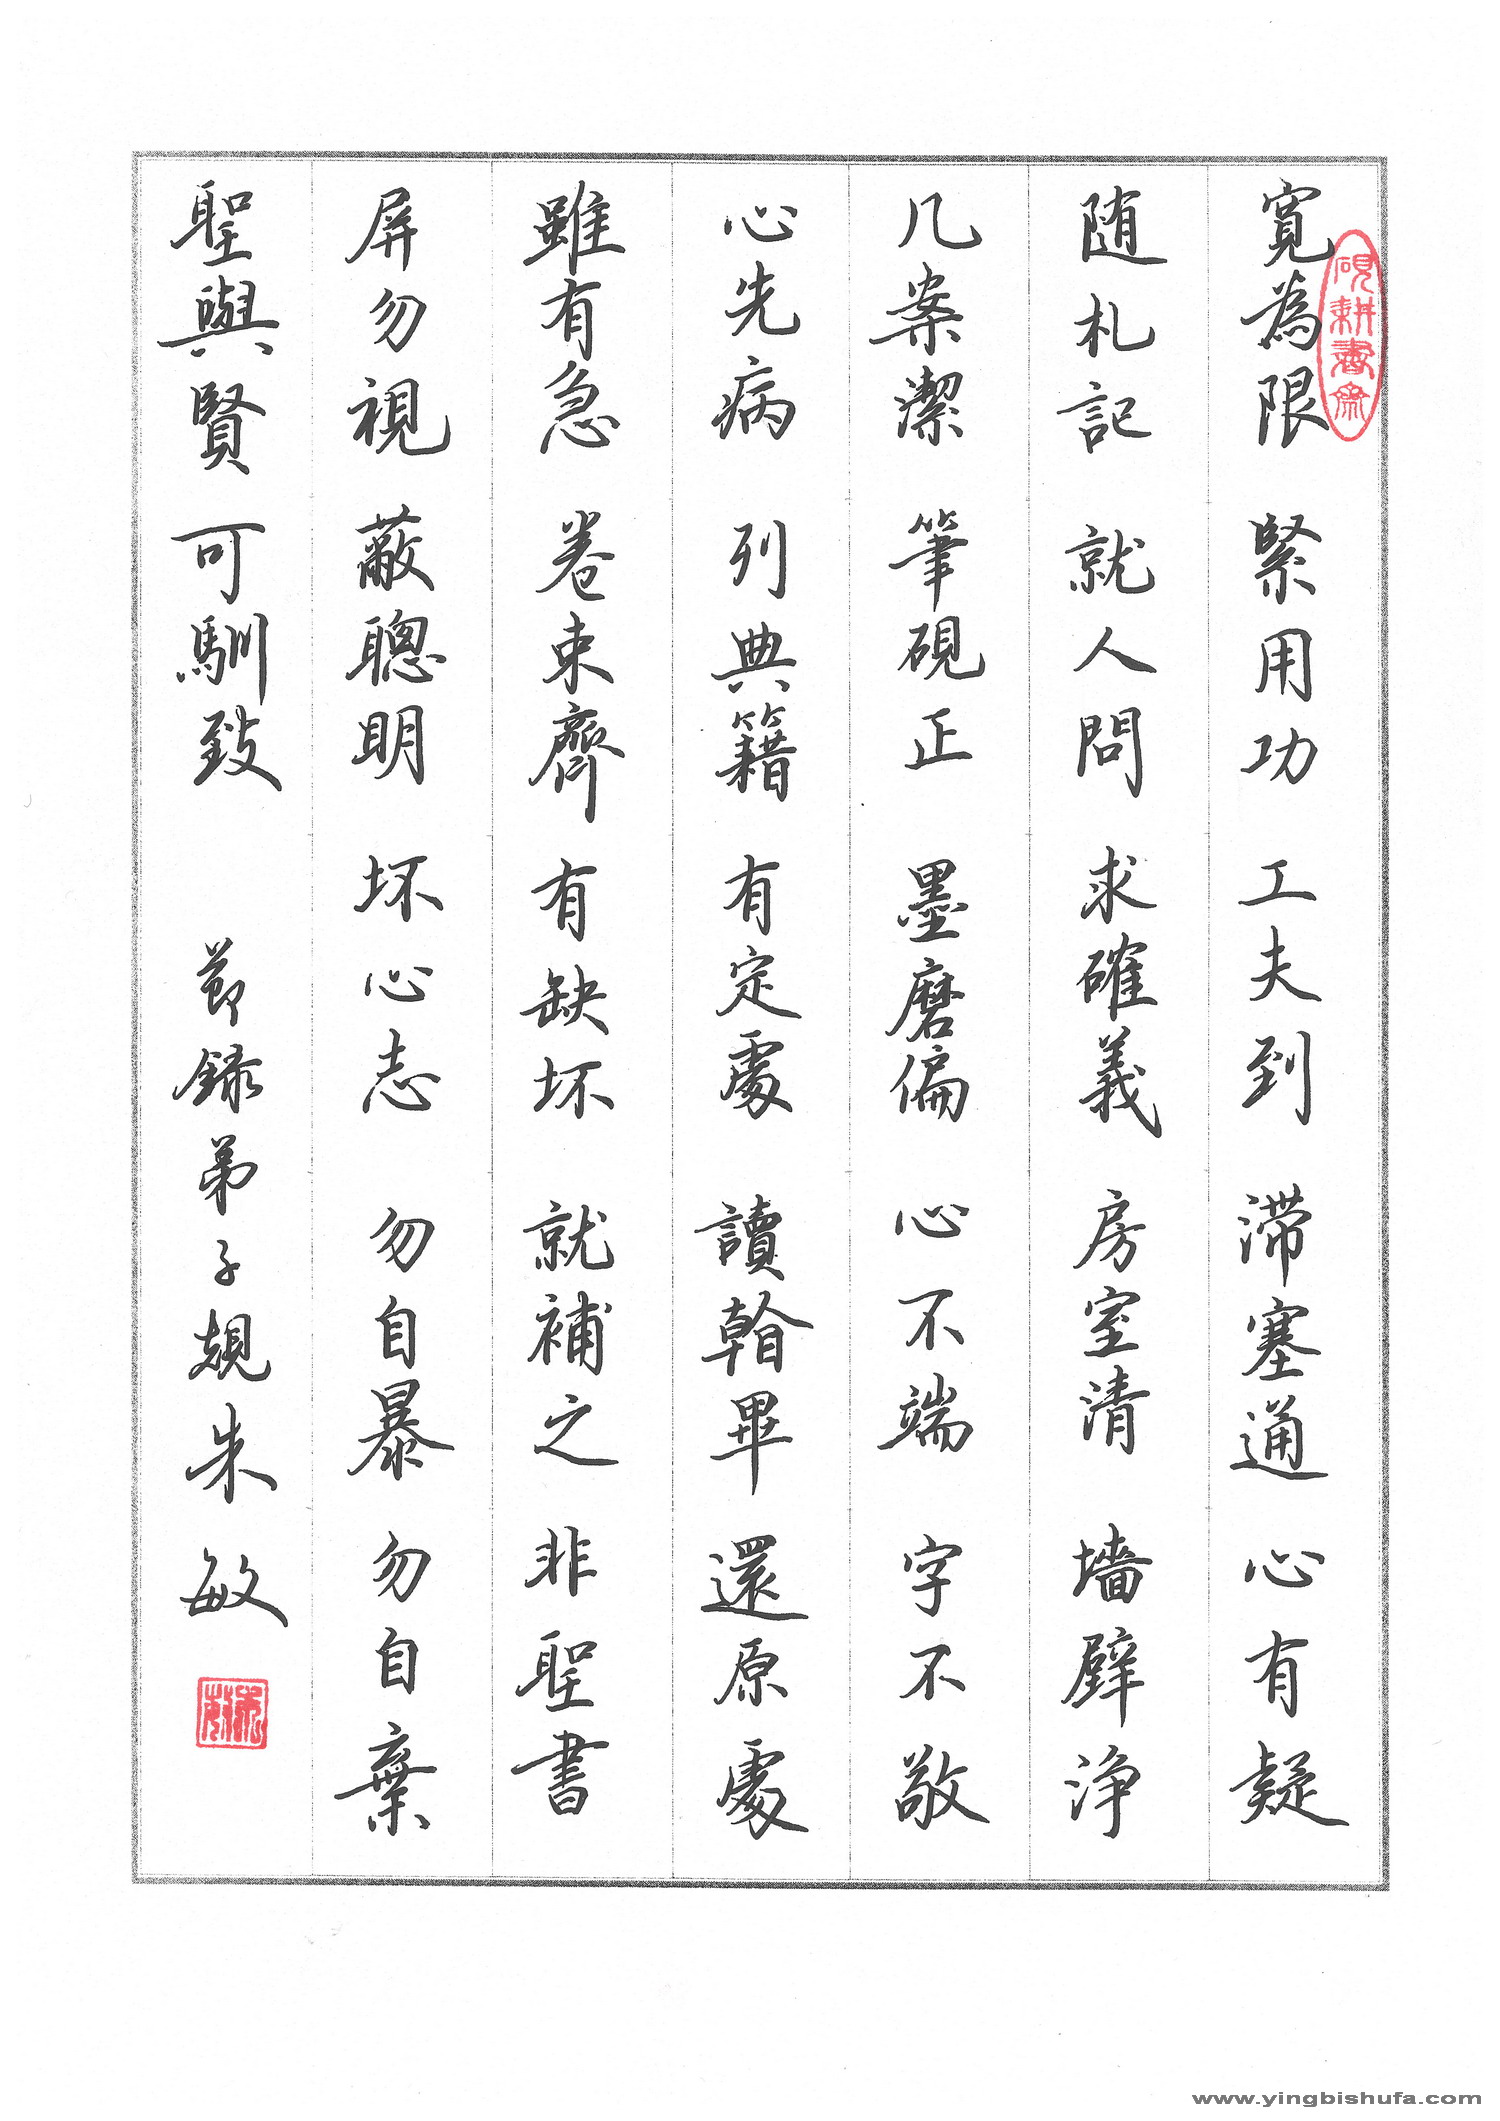 硯耕書齋
寬為限 緊用功 工夫到 滯塞通 心有疑
随札記 就人問 求確義 房室清 墻壁净
几案潔 筆硯正 墨磨偏 心不端 字不敬
心先病 列典籍 有定處 讀看畢 還原處
雖有急 卷束齊 有缺坏 就補之 非聖書
屏勿視 蔽聰明 坏心志 勿自暴 勿自棄
聖與賢 可馴致 節録弟子規朱敏
www.yingbishufa.com